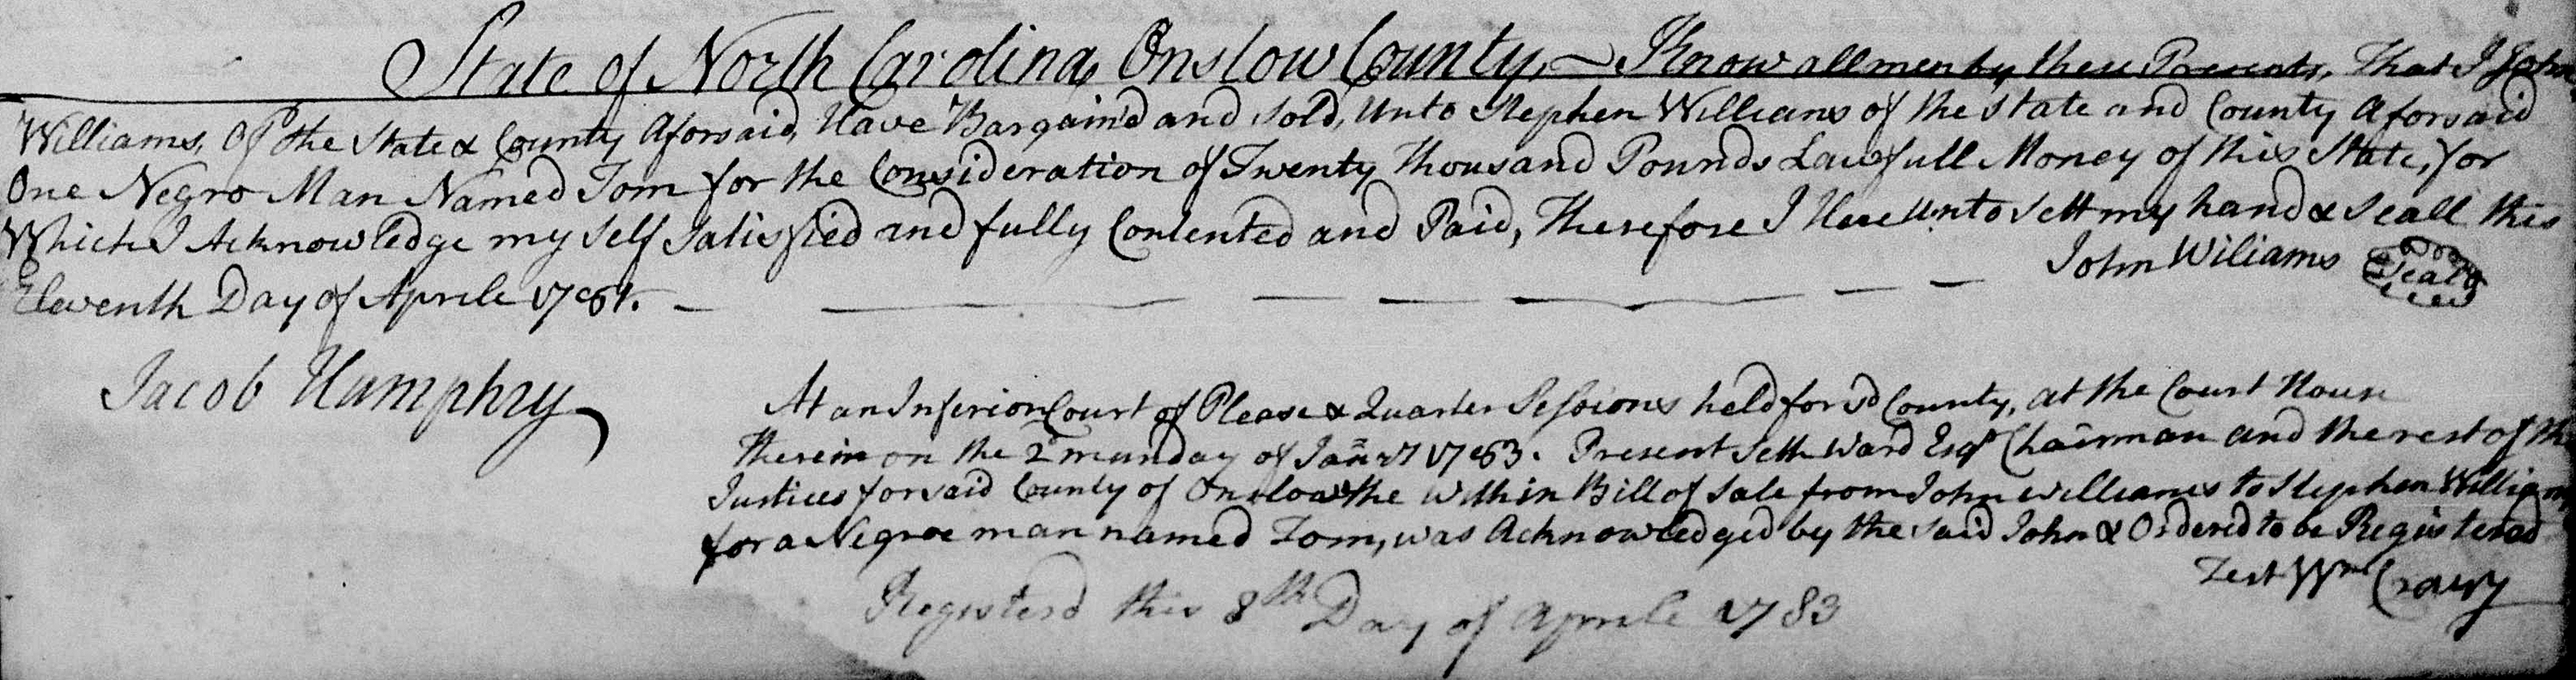 State of North Carolina, Onslow County, Know all men by these Presents, That I John
Williams, Of the State & County Aforsaid, Have Bargain'd and sold, Unto Stephen Williams of the State and County Aforsaid
One Negro Man Named Tom for the Consideration of Twenty Thousand Pounds Lawfull Money of this State, for
Which I Acknowledge my self Satisfied and fully Contented and Paid, Therefore I Have Unto Sett my hand & Seall this
Eleventh Day of Aprile 1781.
John Wiliams Seal
Jacob Humphry
At an Inferior Court of Pleas & Quarter Sessions held for sd County, at the Court House
Therein on the 2d munday of Janry 1783. Present Seth Ward Esqr Chairman and the rest of the
Justices for said County of Onslow the within Bill of Sale from John Williams to Stephen Williams
for a Negroe man named Tom, was Acknowledged by the said John & Ordered to be Registered
Test Wm Cray
Registerd this 8th Day of Aprile 1783